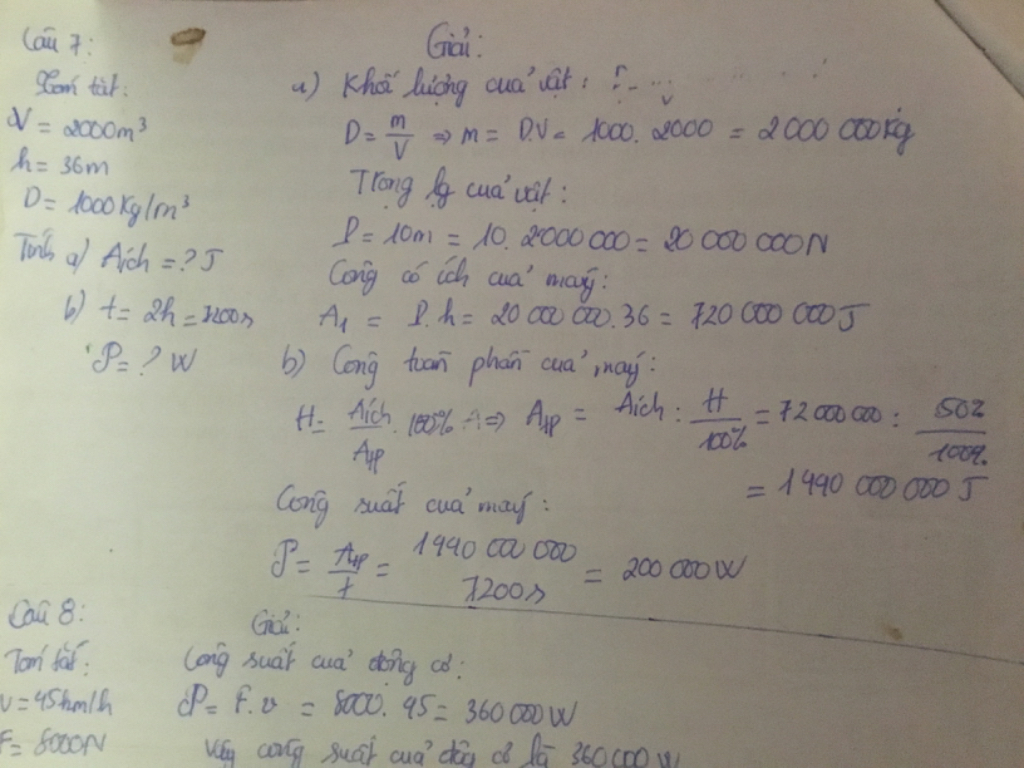 Câu 7:
Giải:
Tóm tắt:
V = 2000m³
h = 36m
D = 1000kg/m³
Tính a) Aích = ? J
b) t = 2h = 7200s
P = ? W
a) Khối lượng của vật:
D = m/V ⇒ m = D.V = 1000. 2000 = 2 000 000kg
Trọng lg của vật:
P = 10m = 10. 2000 000 = 20 000 000N
Công có ích của máy:
A1 = P.h = 20 000 000.36 = 720 000 000J
b) Công toàn phần của máy:
H = Aích/Atp .100% ⇒ Atp = Aích : H/100% = 72 000 000 : 50%/100%
= 1440 000 000 J
Công suất của máy:
P = Atp/t = 1440 000 000/7200s = 200 000W
Câu 8:
Giải:
Tóm tắt:
v = 45km/h
F = 8000N
Công suất của động cơ:
P = F.v = 8000. 45 = 360 000W
Vậy công suất của động cơ là 360 000W